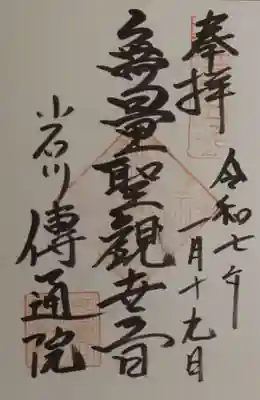 奉拝
令和七年
一月十九日
無量聖観世音
小石川傳通院